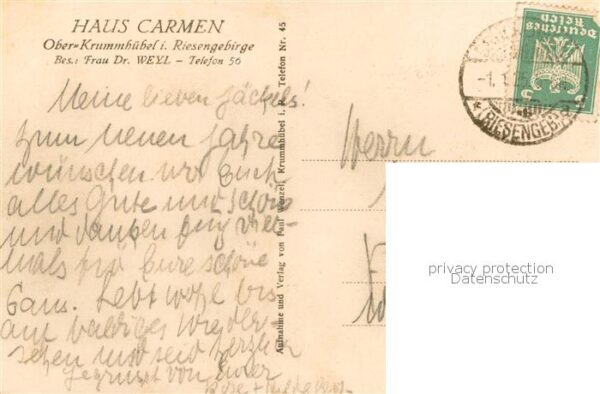 HAUS CARMEN
Ober=Krummhübel i. Riesengebirge
Bes.: Frau Dr. WEYL – Telefon 56
Meine lieben
zum neuen Jahre
wünschen wir Euch
alles Gute und Schöne
und danken Euch viel-
mals für Eure schöne
Gans. Lebt wohl bis
auf baldiges Wieder-
sehen und seid herzlich
gegrüsst von Eurer
Aufnahme und Verlag von Paul Wenzel, Krummhübel i. R. Telefon Nr. 45
Herrn
Deutsches
Reich
RIESENGEB
privacy protection
Datenschutz